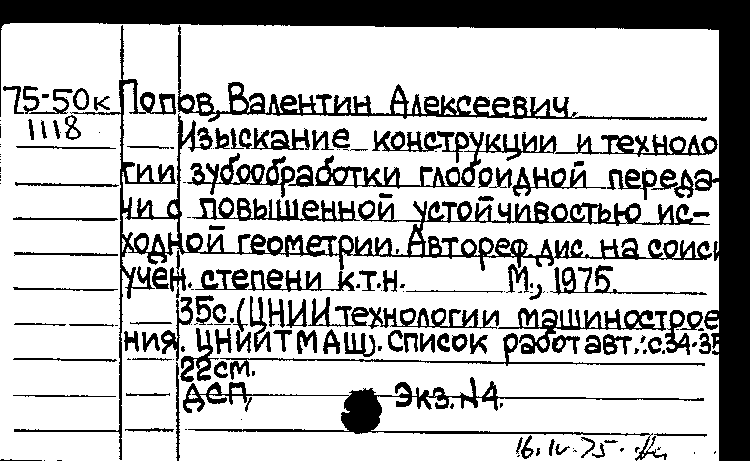 75-50к Попов, Валентин Алексеевич.
1118 Изыскание конструкции и техноло
гии зубообработки глобоидной переда-
чи с повышенной устойчивостью ис-
ходной геометрии. Автореф. дис. на соиск
учен. степени к.т.н. М., 1975.
35с. (ЦНИИ технологии машинострое
ния. ЦНИИТМАШ). Список работ авт.: с.34-35
22см.
ДСП, Экз. №4.
16.IV.75.